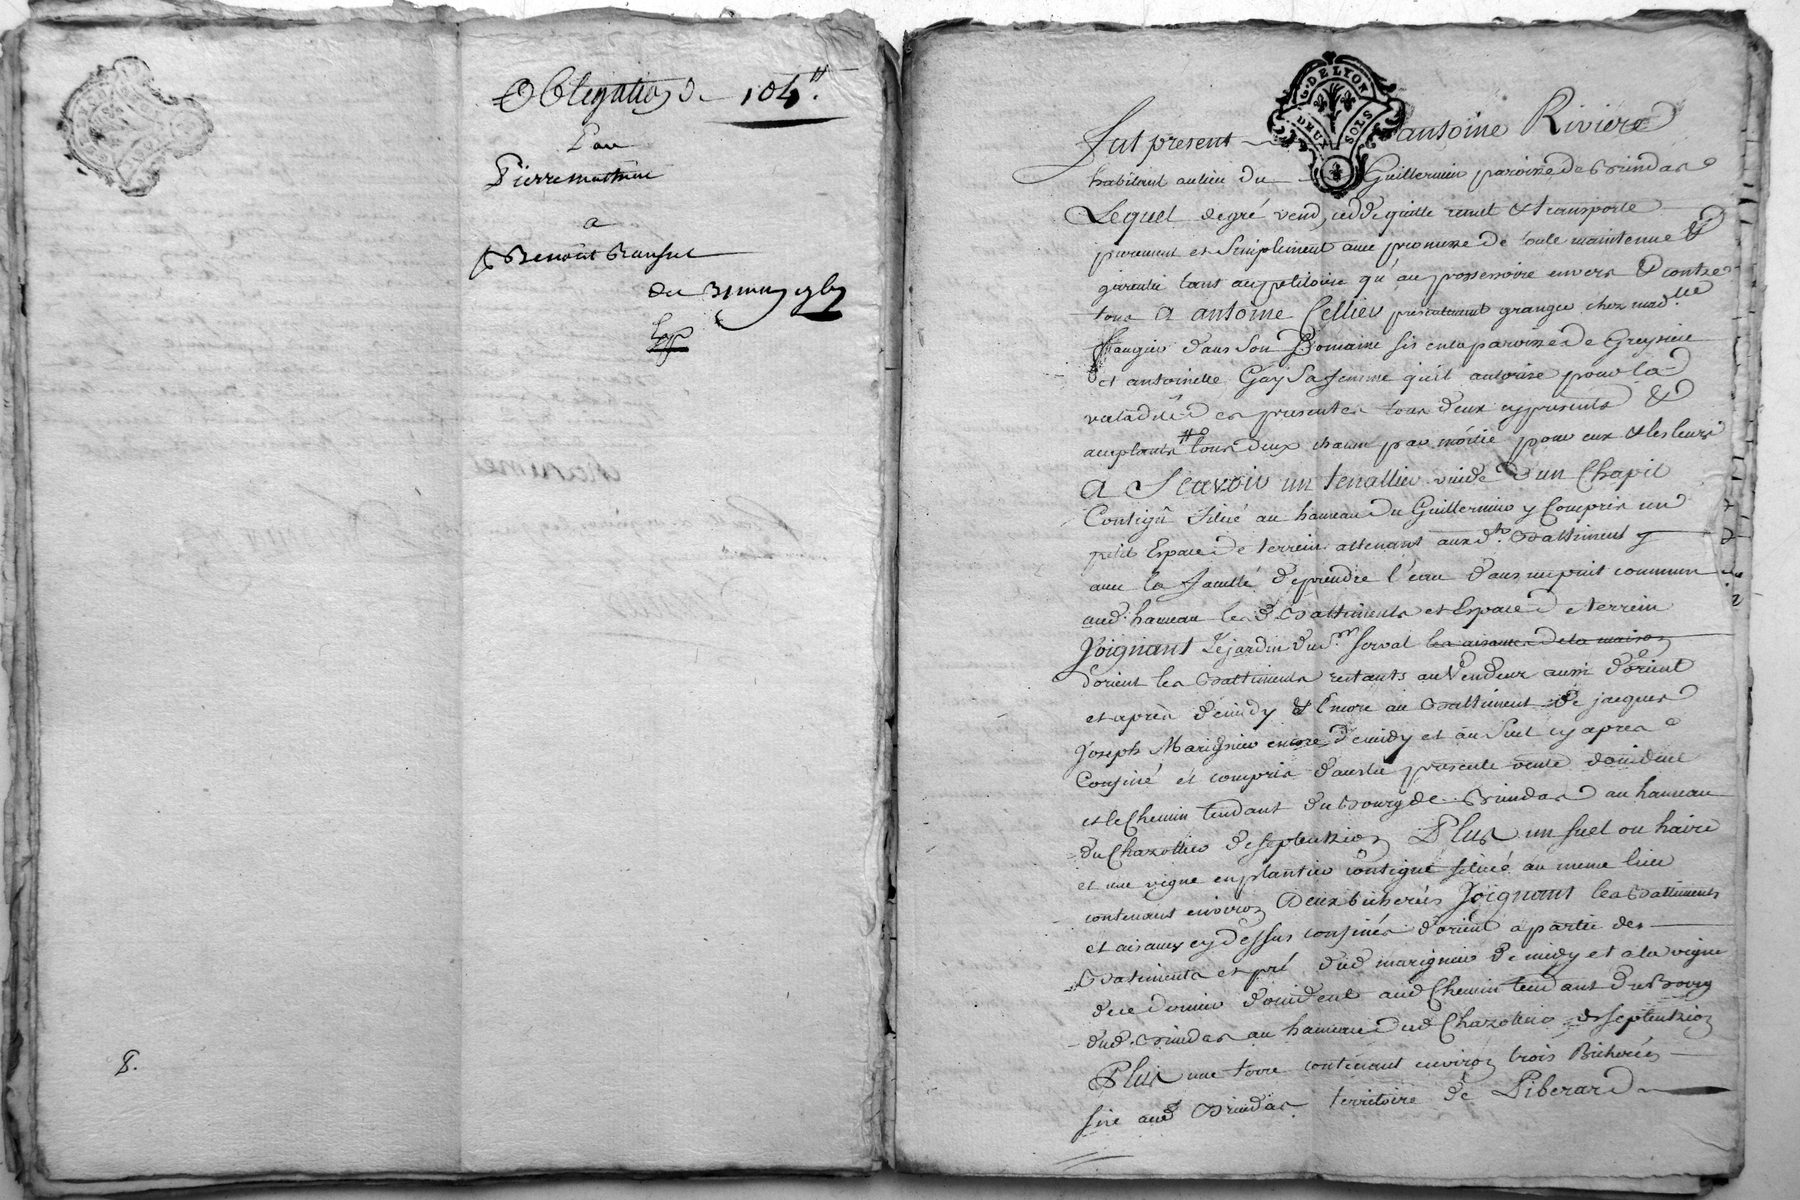 Obligation de 104ᵗᵗ.
Par
Pierre
a
Benoist
du 31 may
8.
G. DE LYON
DEUX SOLS
Fut present antoine Riviere
habitant au lieu du Guillermin paroisse de Brindas
Lequel de gré vend, cedde quitte remet & transporte
purement et simplement avec promesse de toute maintenue &
garentie tant au petitoire qu'au possessoire envers & contre
tous a antoine Cellier presentement granger chez madlle
Faugier dans son Domaine sis en la paroisse de Greysieu
et antoinette Gay sa femme qu'il autorise pour la
validité des presentes tous deux cy presents &
acceptants tous deux chacun par moitié pour eux & les leurs
A Scavoir un tenallier vuide d'un Chapit
Contigu situé au hameau du Guillermin y Compris un
petit Espace de terrein attenant auxdts. Battiment
avec la faculté de prendre l'eau dans un puit commun
aud. hameau les d Battiments et Espace de terrein
Joignant Le jardin du Sr. Serval les aisances de la maison
d'orient les Battiments restants au Vendeur aussi d'orient
et après de midy & Encore au Battiment de jacques
Joseph Marignier encore de midy et au Suel cy apres
Confiné et compris dans la presente vente d'occident
et le Chemin tendant du Bourg de Brindas au hameau
du Chazottier de septentrion Plus un suel ou haire
et une vigne en plantier contigue située au meme lieu
contenant environ Deux bicherées Joignant les Battiments
et aisances cy dessus confinés d'orient a partie des
Batiments et pré dud marignier de midy et a la vigne
de ce dernier d'occident aud Chemin tendant du Bourg
dud. Brindas au hameau dud Chazottier de septentrion
Plus une terre contenant environ trois Bicherées
sise aud Brindas territoire de Piberard